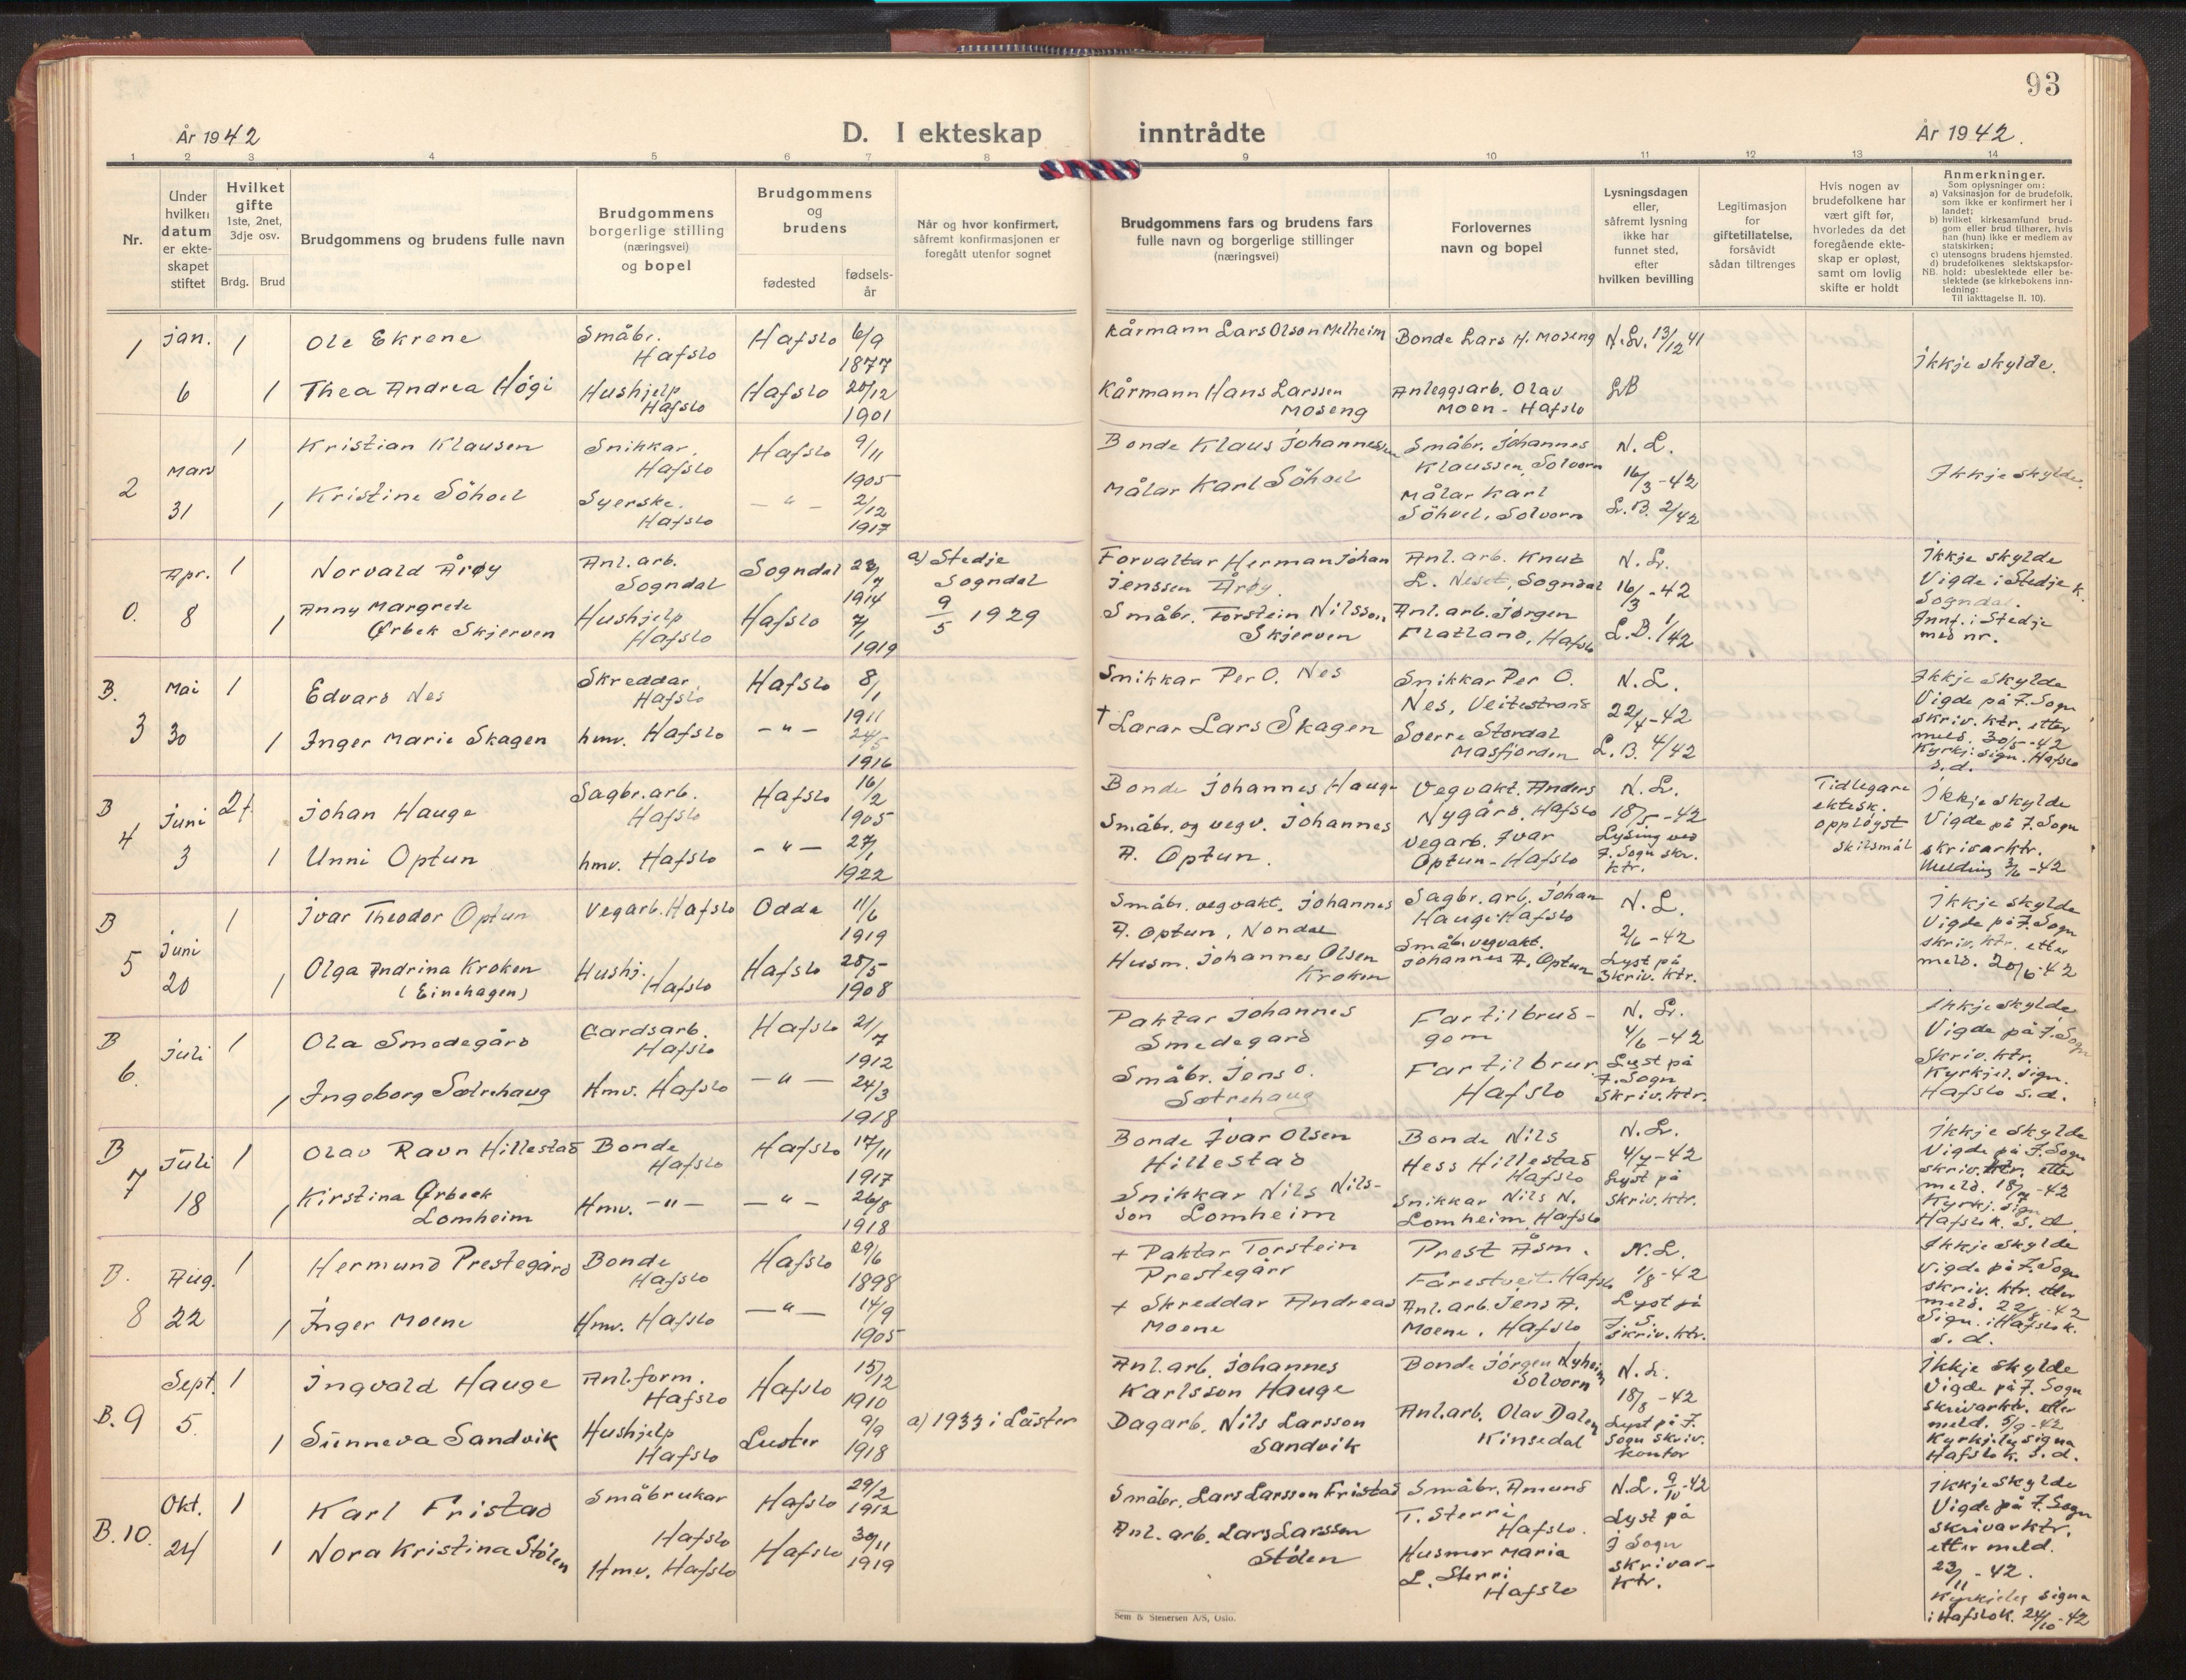 93
År 1942
D. I ekteskap inntrådte
År 1942.
1 2 3 4 5 6 7 8 9 10 11 12 13 14
Nr.
Under hvilken datum er ekteskapet stiftet
Hvilket gifte
1ste, 2net, 3dje osv.
Brdg. Brud
Brudgommens og brudens fulle navn
Brudgommens borgerlige stilling (næringsvei) og bopel
Brudgommens og brudens
fødested
fødselsår
Når og hvor konfirmert, såfremt konfirmasjonen er foregått utenfor sognet
Brudgommens fars og brudens fars fulle navn og borgerlige stillinger (næringsvei)
Forlovernes navn og bopel
Lysningsdagen eller, såfremt lysning ikke har funnet sted, efter hvilken bevilling
Legitimasjon for giftetillatelse, forsåvidt sådan tiltrenges
Hvis nogen av brudefolkene har vært gift før, hvorledes da det foregående ekteskap er opløst, samt om lovlig skifte er holdt
Anmerkninger.
Som oplysninger om:
a) Vaksinasjon for de brudefolk, som ikke er konfirmert her i landet;
b) hvilket kirkesamfund brudgom eller brud tilhører, hvis han (hun) ikke er medlem av statskirken;
c) utensogns brudens hjemsted.
d) brudefolkenes slektskapsforhold: ubeslektede eller beslektede (se kirkebokens innledning:
NB.
Til iakttagelse II. 10).
1 Jan. 1 Ole Ekrene Småbr. Hafslo Hafslo 6/9 1877 Kårmann Lars Olson Melheim Bonde Lars H. Moseng N.L. 13/12 41 Ikkje skylde.
6 1 Thea Andrea Högi Hushjelp Hafslo Hafslo 20/12 1901 Kårmann Hans Larssen Moseng Anleggsarb. Olav Moen - Hafslo LB
2 Mars 1 Kristian Klausen Snikkar. Hafslo Hafslo 9/11 1905 Bonde Klaus Johannessen Småbr. Johannes Klaussen, Solvorn N.L. 16/3-42 Ikkje skylde.
31 1 Kristine Söhoel Syerske. Hafslo - " - 2/12 1917 Målar Karl Söhoel Målar Karl Söhoel, Solvorn L.B. 2/42
0. Apr. 1 Norvald Årøy Anl.arb. Sogndal Sogndal 1914 a) Stedje Sogndal 9/5 1929 Forvaltar Herman Johan Jenssen Årøy. Anl.arb. Knut L. Neset, Sogndal N.L. 16/3-42 Ikkje skylde Vigde i Stedje k. Sogndal. Innf. i Stedje med nr.
8 1 Anny Margrete Ørbek Skjerven Hushjelp Hafslo Hafslo 7/1 1919 Småbr. Torstein Nilsson Skjerven Anl.arb. Jørgen Flatland, Hafslo L.B. 1/42
B. 3 Mai 1 Edvard Nes Skreddar Hafslo Hafslo 8/1 1911 Snikkar Per O. Nes Snikkar Per O. Nes, Veitestrand N.L. 22/4-42 Ikkje skylde Vigde på I. Sogn skriv. ktr. etter meld. 30/5-42 Kyrkj. sign. Hafslo s.d.
30 1 Inger Marie Skagen hmv. Hafslo - " - 24/5 1916 † Lærar Lars Skagen Sverre Stordal Masfjorden L.B. 4/42
B 4 Juni 2f Johan Hauge Sagbr.arb. Hafslo Hafslo 16/2 1905 Bonde Johannes Hauge Vegvakt. Anders Nygård, Hafslo N.L. 18/5-42 Tidlegare ektesk. opployst skilsmål Ikkje skylde Vigde på I. Sogn skrivarktr. Melding 3/6-42
3 1 Unni Optun hmv. Hafslo - " - 27/1 1922 Småbr. og vegv. Johannes A. Optun. Vegarb. Ivar Optun - Hafslo Lysing ved I. Sogn skr. ktr.
B 5 Juni 1 Ivar Theodor Optun Vegarb. Hafslo Odda 11/6 1919 Småbr. vegvakt. Johannes A. Optun, Nondal Sagbr. arb. Johan Hauge Hafslo N.L. 2/6-42 Ikkje skylde Vigde på I. Sogn skriv. ktr. etter meld. 20/6-42
20 1 Olga Andrina Kroken (Einehagen) Hushj. Hafslo Hafslo 28/5 1908 Husm. Johannes Olsen Kroken Småbr. vegvakt. Johannes A. Optun Lyst på Skriv. ktr.
B 6. Juli 1 Ola Smedegård Gardsarb. Hafslo Hafslo 21/7 1912 Paktar Johannes Smedegard Far til brudgom N.L. 4/6-42 Ikkje skylde Vigde på I. Sogn Skriv. ktr. Kyrkjel. sign. Hafslo s.d.
1 Ingeborg Sætrehaug Hmv. Hafslo - " - 24/3 1918 Småbr. Jens O. Sætrehaug Far til brur Hafslo Lyst på I. Sogn Skriv. ktr.
B 7 Juli 1 Olav Ravn Hillestad Bonde Hafslo Hafslo 17/11 1917 Bonde Ivar Olsen Hillestad Bonde Nils Hess Hillestad Hafslo N.L. 4/7-42 Ikkje skylde Vigde på I. Sogn skriv. ktr. etter meld. 18/7-42 Kyrkj. sign Hafslo k. s.d.
18 1 Kirstina Ørbeck Lomheim Hmv. - " - - " - 26/8 1918 Snikkar Nils Nilsson Lomheim Snikkar Nils N. Lomheim, Hafslo Lyst på Skriv. ktr.
B. 8 Aug. 1 Hermund Prestegård Bonde Hafslo Hafslo 29/6 1898 + Paktar Torstein Prestegård Prest Åsm. Fårestveit. Hafslo N.L. 1/8-42 Ikkje skylde Vigde på I. Sogn skriv. ktr. etter meld. 22/8-42 Sign. i Hafslo k. s.d.
22 1 Inger Moene Hmv. Hafslo - " - 14/9 1905 + Skreddar Andreas Moene Anl.arb. Jens A. Moene. Hafslo Lyst på I. S. Skriv. ktr.
B. 9 Sept. 1 Ingvald Hauge Anl.form. Hafslo Hafslo 15/12 1910 Anl.arb. Johannes Karlsson Hauge Bonde Jörgen Nyheim Solvorn N.L. 18/8-42 Ikkje skylde Vigde på I. Sogn skrivarktr. etter meld. 5/9-42 Kyrkjeleg signa Hafslo k. s.d.
5. 1 Sunneva Sandvik Hushjelp Hafslo Luster 9/9 1918 a) 1933 i Luster Dagarb. Nils Larsson Sandvik Anl.arb. Olav Dalen Kinsedal Lyst på I. Sogn skriv. kontor
B.10. Okt. 1 Karl Fristad Småbrukar Hafslo Hafslo 29/2 1912 Småbr. Lars Larsson Fristad Småbr. Amund T. Sterri Hafslo. N.L. 9/10-42 Ikkje skylde Vigde på I. Sogn skrivarktr. etter meld. 23/11-42. Kyrkjeleg signa i Hafslo k. 24/10-42
24 1 Nora Kristina Stölen Hmv. Hafslo Hafslo 30/11 1919 Anl.arb. Lars Larssen Stölen Husmor Maria L. Sterri Hafslo Lyst på I Sogn skrivarktr.
Sem & Stenersen A/S, Oslo.